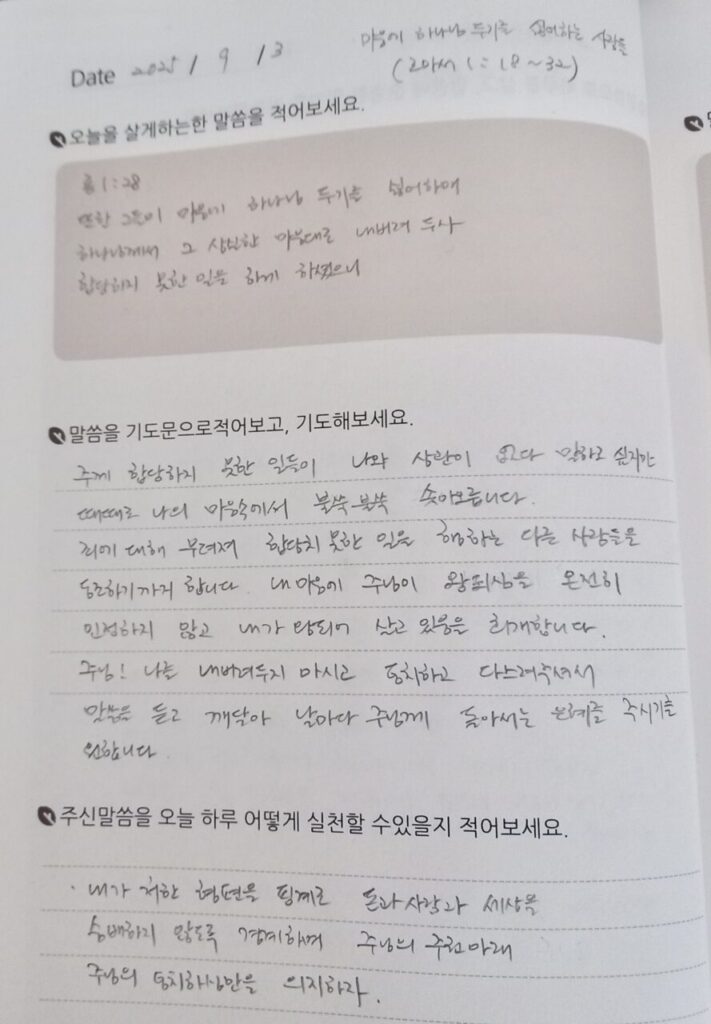 마음에 하나님 두기를 싫어하는 사람들
Date 2025 / 9 / 3
(로마서 1:18~32)
오늘을 살게하는한 말씀을 적어보세요.
롬1:28
또한 그들이 마음에 하나님 두기를 싫어하매
하나님께서 그 상실한 마음대로 내버려 두사
합당하지 못한 일을 하게 하셨으니
말씀을 기도문으로적어보고, 기도해보세요.
주께 합당하지 못한 일들이 나와 상관이 없다 말하고 싶지만
때때로 나의 마음속에서 불쑥불쑥 솟아오릅니다.
죄에 대해 무뎌져 합당치 못한 일을 행하는 다른 사람들을
동조하기까지 합니다. 내 마음에 주님이 왕되심을 온전히
인정하지 않고 내가 왕되어 살고 있음을 회개합니다.
주님! 나를 내버려두지 마시고 통치하고 다스려주셔서
말씀을 듣고 깨달아 날마다 주님께 돌아서는 은혜를 주시기를
원합니다.
주신말씀을 오늘 하루 어떻게 실천할 수있을지 적어보세요.
· 내가 처한 형편을 핑계로 돈과 사람과 세상을
숭배하지 않도록 경계하며 주님의 주권아래
주님의 통치하심만을 의지하자.